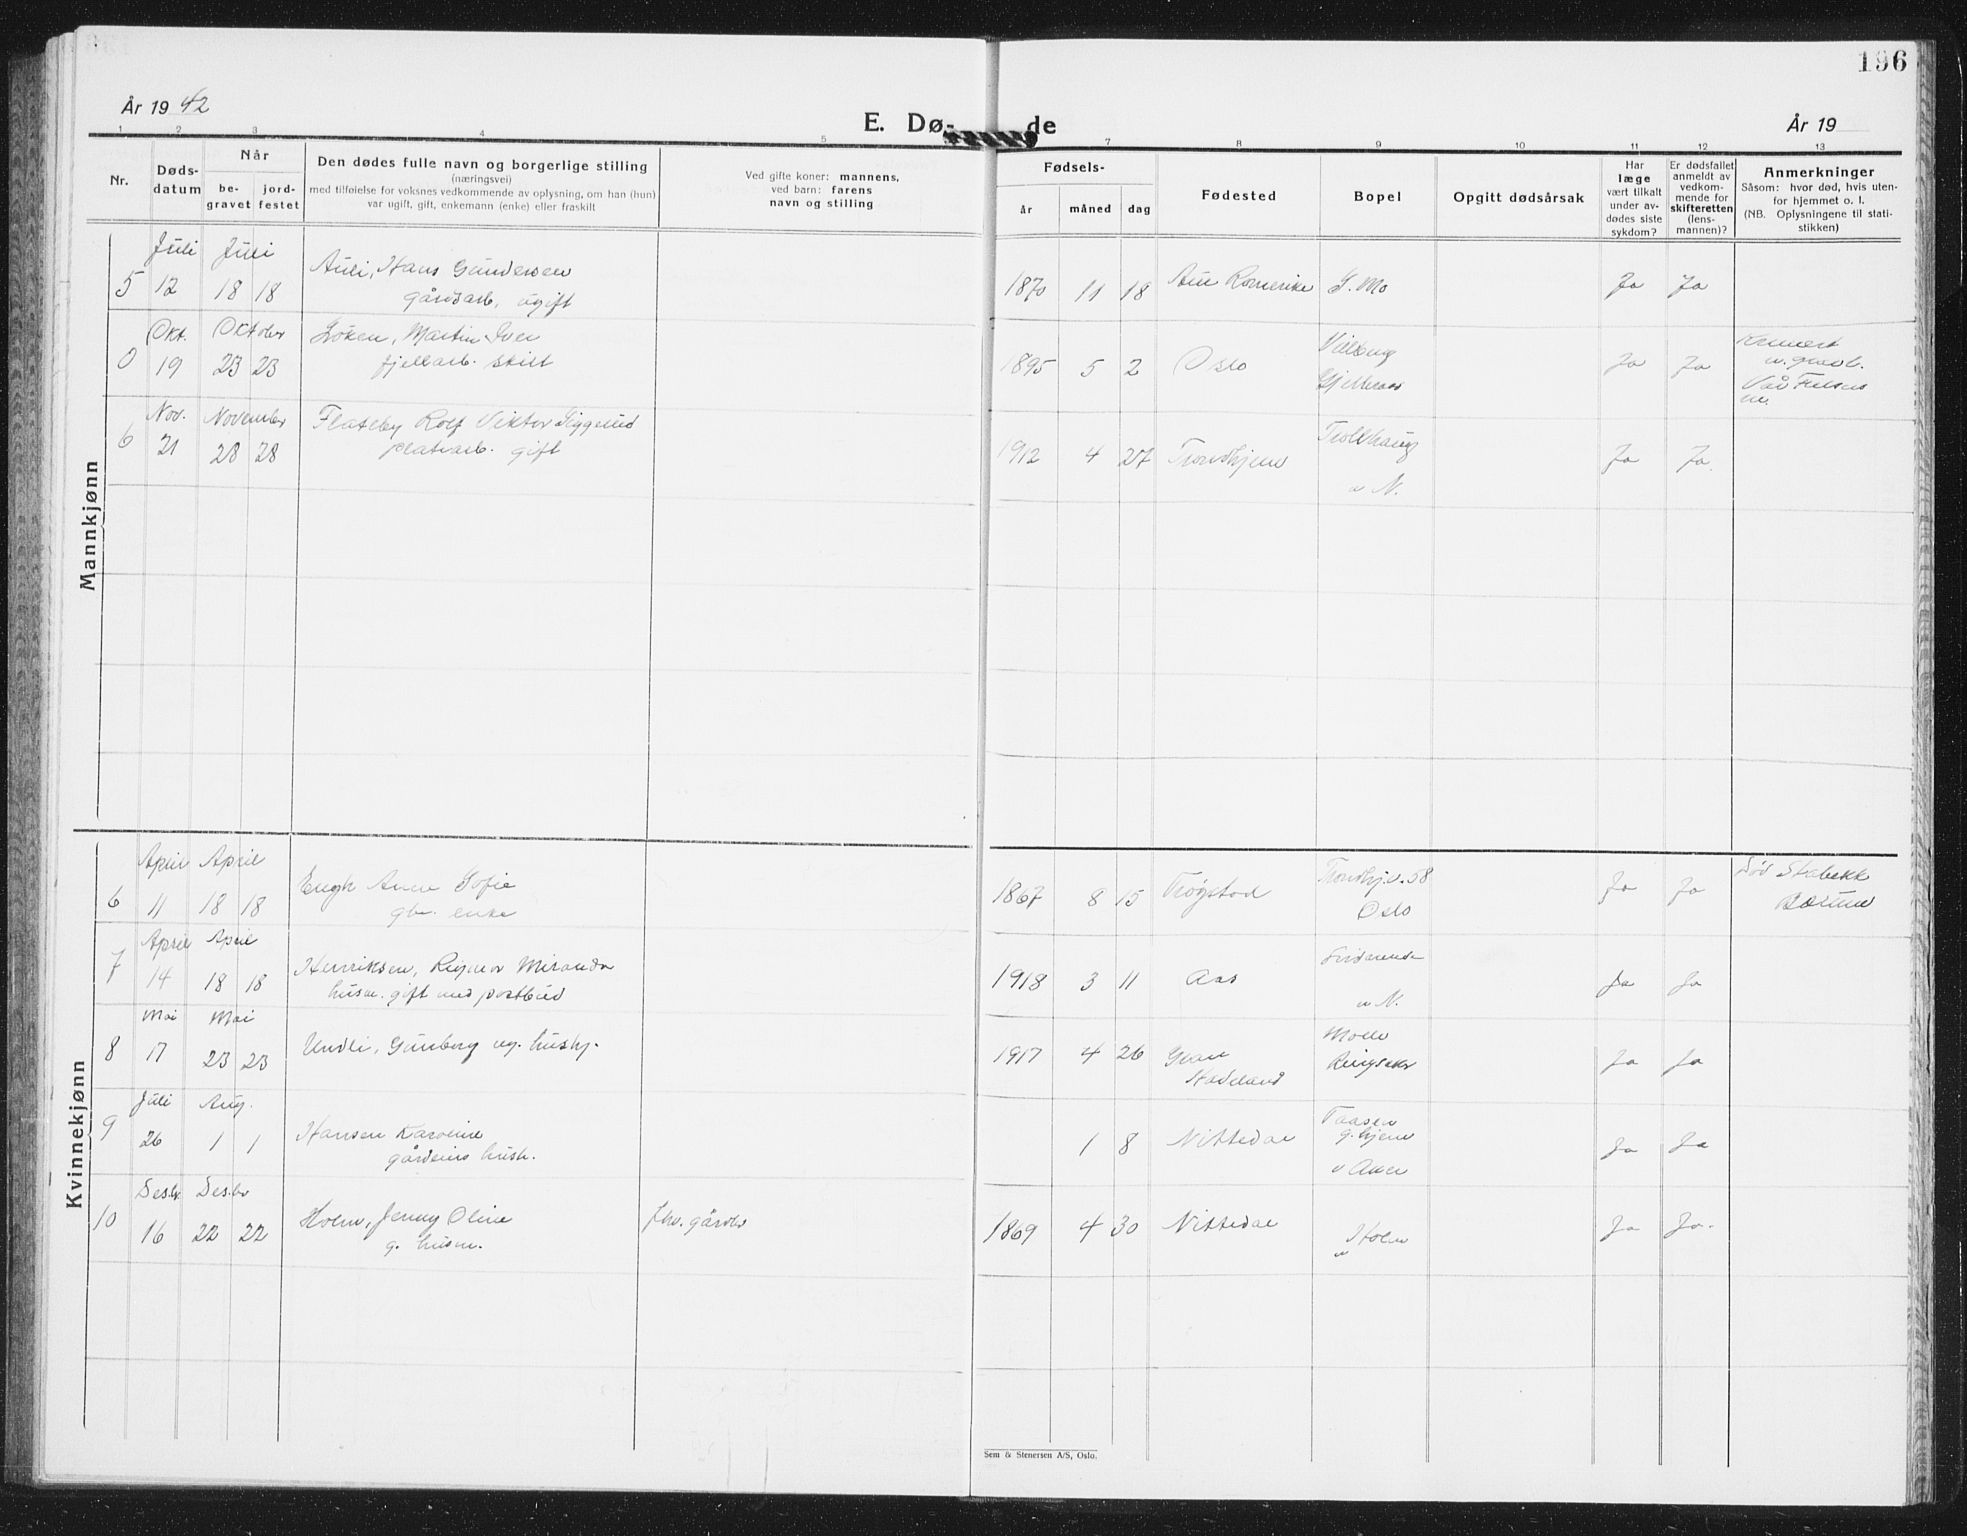 196
År 19 42
E. Dø-
de
År 19
1 2 3 4 5 7 8 9 10 11 12 13
Nr.
Døds-
datum
Når
be-
gravet
jord-
festet
Den dødes fulle navn og borgerlige stilling
(næringsvei)
med tilføielse for voksnes vedkommende av oplysning, om han (hun)
var ugift, gift, enkemann (enke) eller fraskilt
Ved gifte koner: mannens,
ved barn: farens
navn og stilling
Fødsels-
år måned dag
Fødested
Bopel
Opgitt dødsårsak
Har
læge
vært tilkalt
under av-
dødes siste
sykdom?
Er dødsfallet
anmeldt av
vedkom-
mende for
skifteretten
(lens-
mannen)?
Anmerkninger
Såsom: hvor død, hvis uten-
for hjemmet o. l.
(NB. Oplysningene til stati-
stikken)
Mannkjønn
Juli Juli
5 12 18 18 Auli, Hans Gundersen
gårdsarb. ugift
1870 11 18 Romerike G. Mo Ja Ja
Okt. Oktober
0 19 23 23 Løken, Martin Iver
fjellarb. skilt
1895 5 2 Oslo Ja Ja
Nov. November
6 21 28 28 Flateby Rolf Viktor
platearb. gift
1912 4 27 Trondhjem Trollhaug
N. Ja Ja.
Kvinnekjønn
April April
6 11 18 18 Engh Anna Sofie
enke
1867 8 15 Trøgstad Trondhj.v. 58
Oslo Ja Ja Stabekk
Bærum
April April
7 14 18 18 Henriksen, Rigmor Miranda
husm. gift med postbud
1918 3 11 Aas
N. Ja Ja
Mai Mai
8 17 23 23 Undli, Gunborg ug. hushj.
1917 4 26 Gran
Hadeland Moelv
Ringsaker Ja Ja
Juli Aug.
9 26 1 1 Hansen Karoline
hush.
1 8 Nittedal Taasen
g.hjem
v Aker Ja Ja
Des.br Des.br
10 16 22 22 Holm, Jenny Oline
g. husm.
fhv. gårdbr
1869 4 30 Nittedal Holm
Ja Ja.
Sem & Stenersen A/S, Oslo.